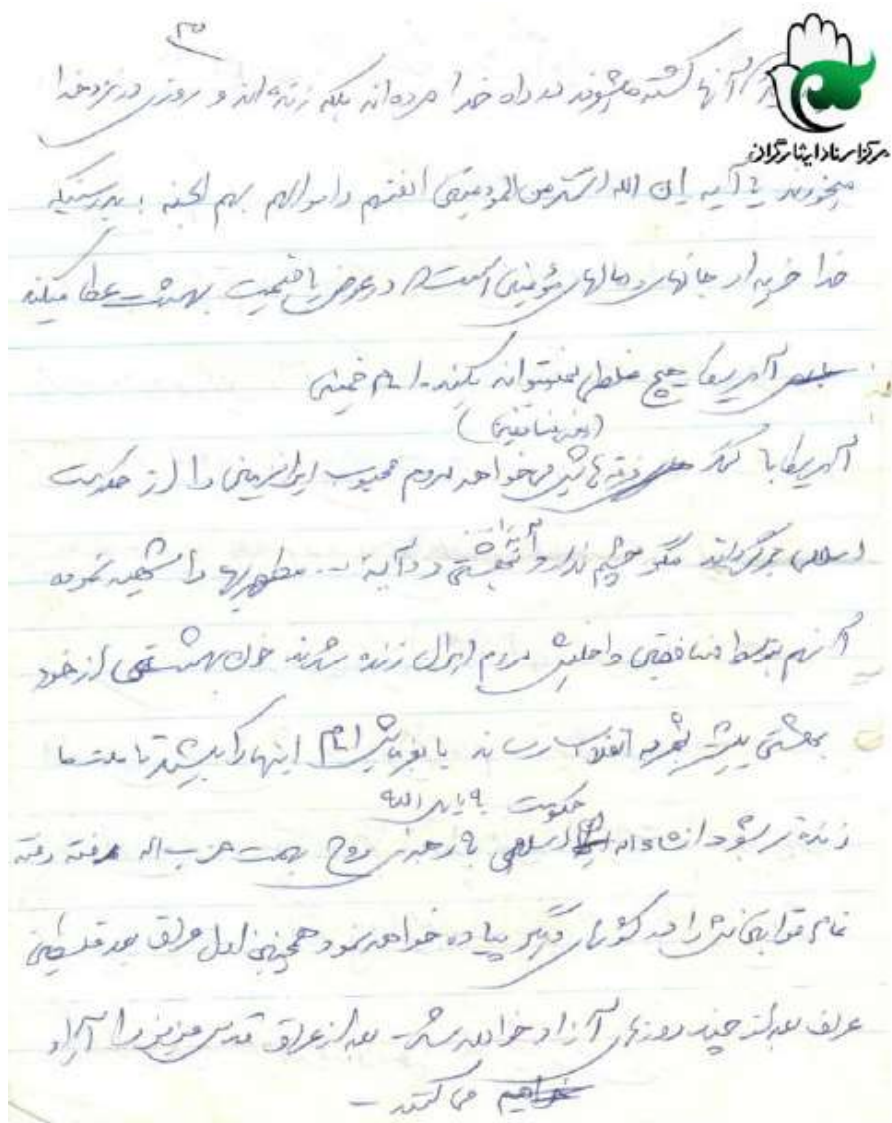 ۳
آنها کشته میشوند در راه خدا مرده اند بلکه زنده اند و روزی در نزد خدا
مرکز اسناد ایثارگران
میخورند یا آیه ان الله اشتری من المومنین انفسهم و اموالهم بهم الجنه ؛ بدرستیکه
خدا خریدار جانهای و مالهای مؤمنین است در عوض یا قیمت بهشت عطا میکند
آمریکا هیچ غلطی نمیتواند بکند. امام خمینی
(منافقین)
آمریکا با کمک فرقه هایش میخواهد مردم محبوب ایران زمین را از حکومت
اسلامی برگرداند مگر چشم ندارد و آیة ... مطهریها را شهید نموده
آنهم توسط منافقین داخلیش مردم ایران زنده شدند خون بهشتی از خود
بهشتی بیشتر ثمر به انقلاب رساند یا بفرمایش امام اینها را بکشید تا ملت ما
حکومت
زنده تر بشود انشاءاله اسلامی با رهبری روح بهمت حزب اله رفته رفته
تمام قوانینش را در کشورهای دیگر پیاده خواهد نمود همچنین اول عراق بعد فلسطین
عراق بعد از چند روزهای آزاد خواهد شد - بعد از عراق قدس عزیز را آزاد
خواهیم می کنند -